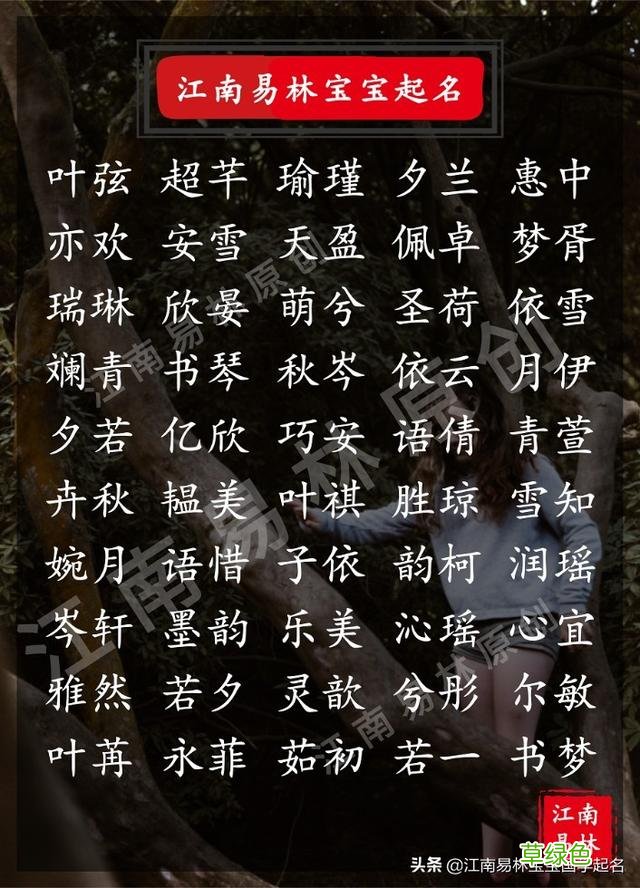 江南易林宝宝起名
叶弦 超芊 瑜瑾 夕兰 惠中
亦欢 安雪 天盈 佩卓 梦胥
瑞琳 欣晏 萌兮 圣荷 依雪
斓青 书琴 秋岑 依云 月伊
夕若 亿欣 巧安 语倩 青萱
卉秋 韫美 叶祺 胜琼 雪知
婉月 语惜 子依 韵柯 润瑶
岑轩 墨韵 乐美 沁瑶 心宜
雅然 若夕 灵歆 兮彤 尔敏
叶苒 永菲 茹初 若一 书梦
江南易林原创
江南易林原创
江南易林原创
江南
易林
草绿色
头条 @江南易林宝宝国学起名